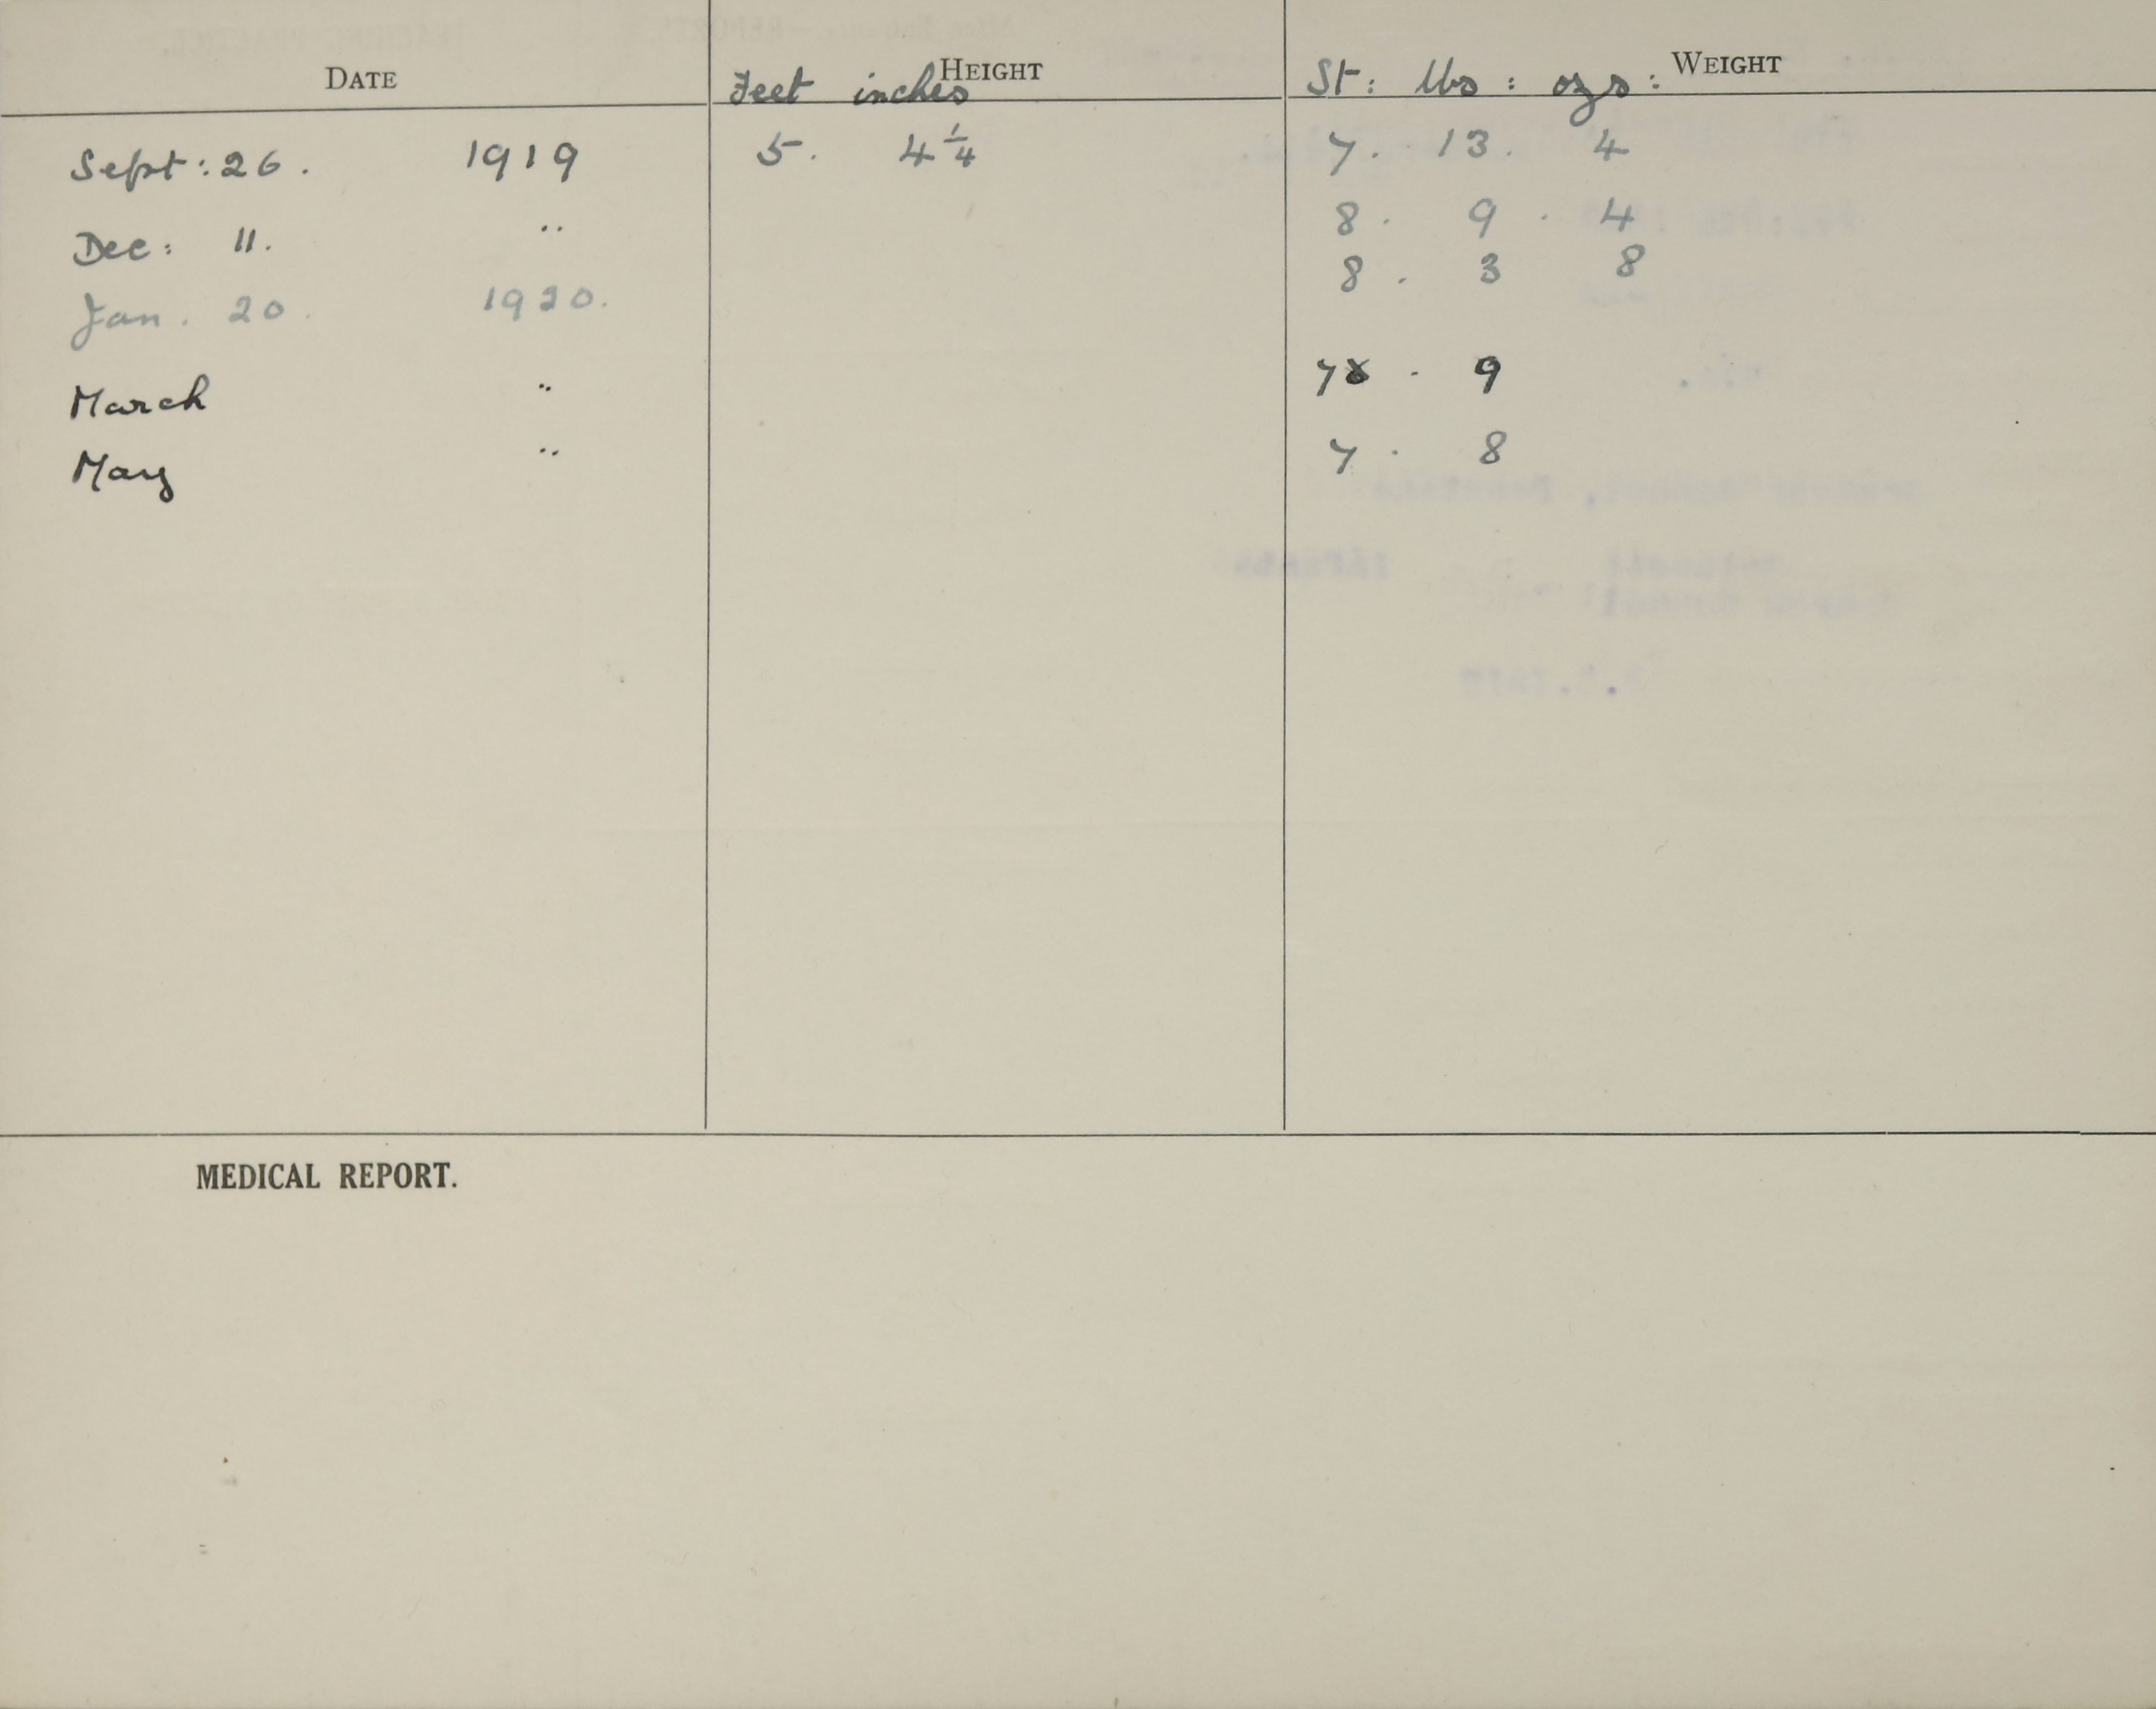 DATE HEIGHT WEIGHT
Feet inches St: lbs: ozs:
Sept: 26. 1919 5. 4 1/4 7. 13. 4
Dec: 11. " 8. 9. 4
Jan. 20. 1920. 8. 3 8
March " 7 8. 9
May " 7. 8
MEDICAL REPORT.